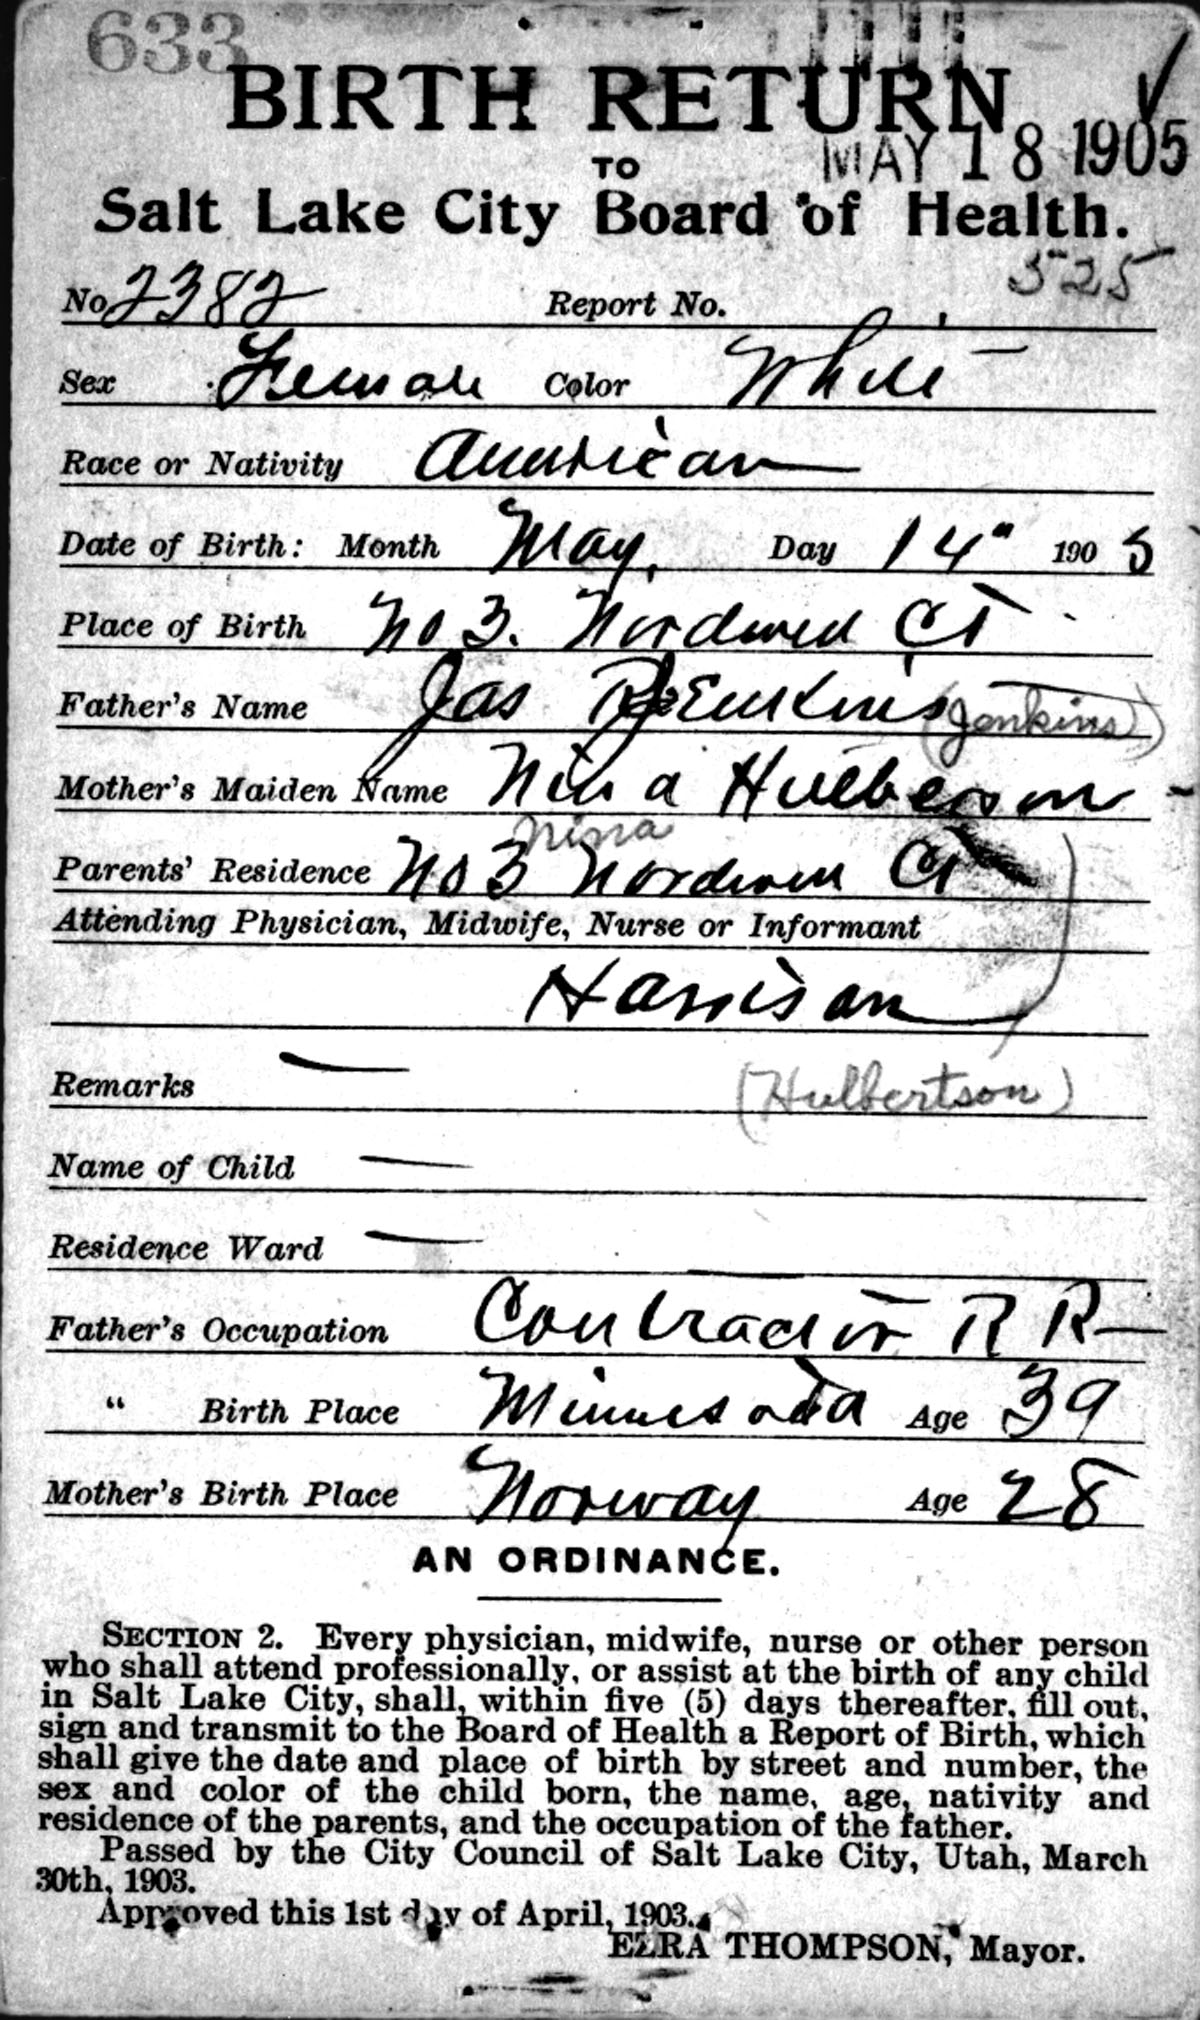 633
BIRTH RETURN
TO
MAY 18 1905
Salt Lake City Board of Health.
525
No 2382 Report No.
Sex Female Color White
Race or Nativity American
Date of Birth: Month May, Day 14" 1905
Place of Birth No 3. Ct
Father's Name Jas Jenkins (Jenkins)
Mother's Maiden Name Nina Hulberson
Nina
Parents' Residence No 3 Ct
Attending Physician, Midwife, Nurse or Informant
Harrison
Remarks — (Hulbertson)
Name of Child —
Residence Ward —
Father's Occupation Contractor R R —
" Birth Place Minnesota Age 39
Mother's Birth Place Norway Age 28
AN ORDINANCE.
SECTION 2. Every physician, midwife, nurse or other person
who shall attend professionally, or assist at the birth of any child
in Salt Lake City, shall, within five (5) days thereafter, fill out,
sign and transmit to the Board of Health a Report of Birth, which
shall give the date and place of birth by street and number, the
sex and color of the child born, the name, age, nativity and
residence of the parents, and the occupation of the father.
Passed by the City Council of Salt Lake City, Utah, March
30th, 1903.
Approved this 1st day of April, 1903.
EZRA THOMPSON, Mayor.